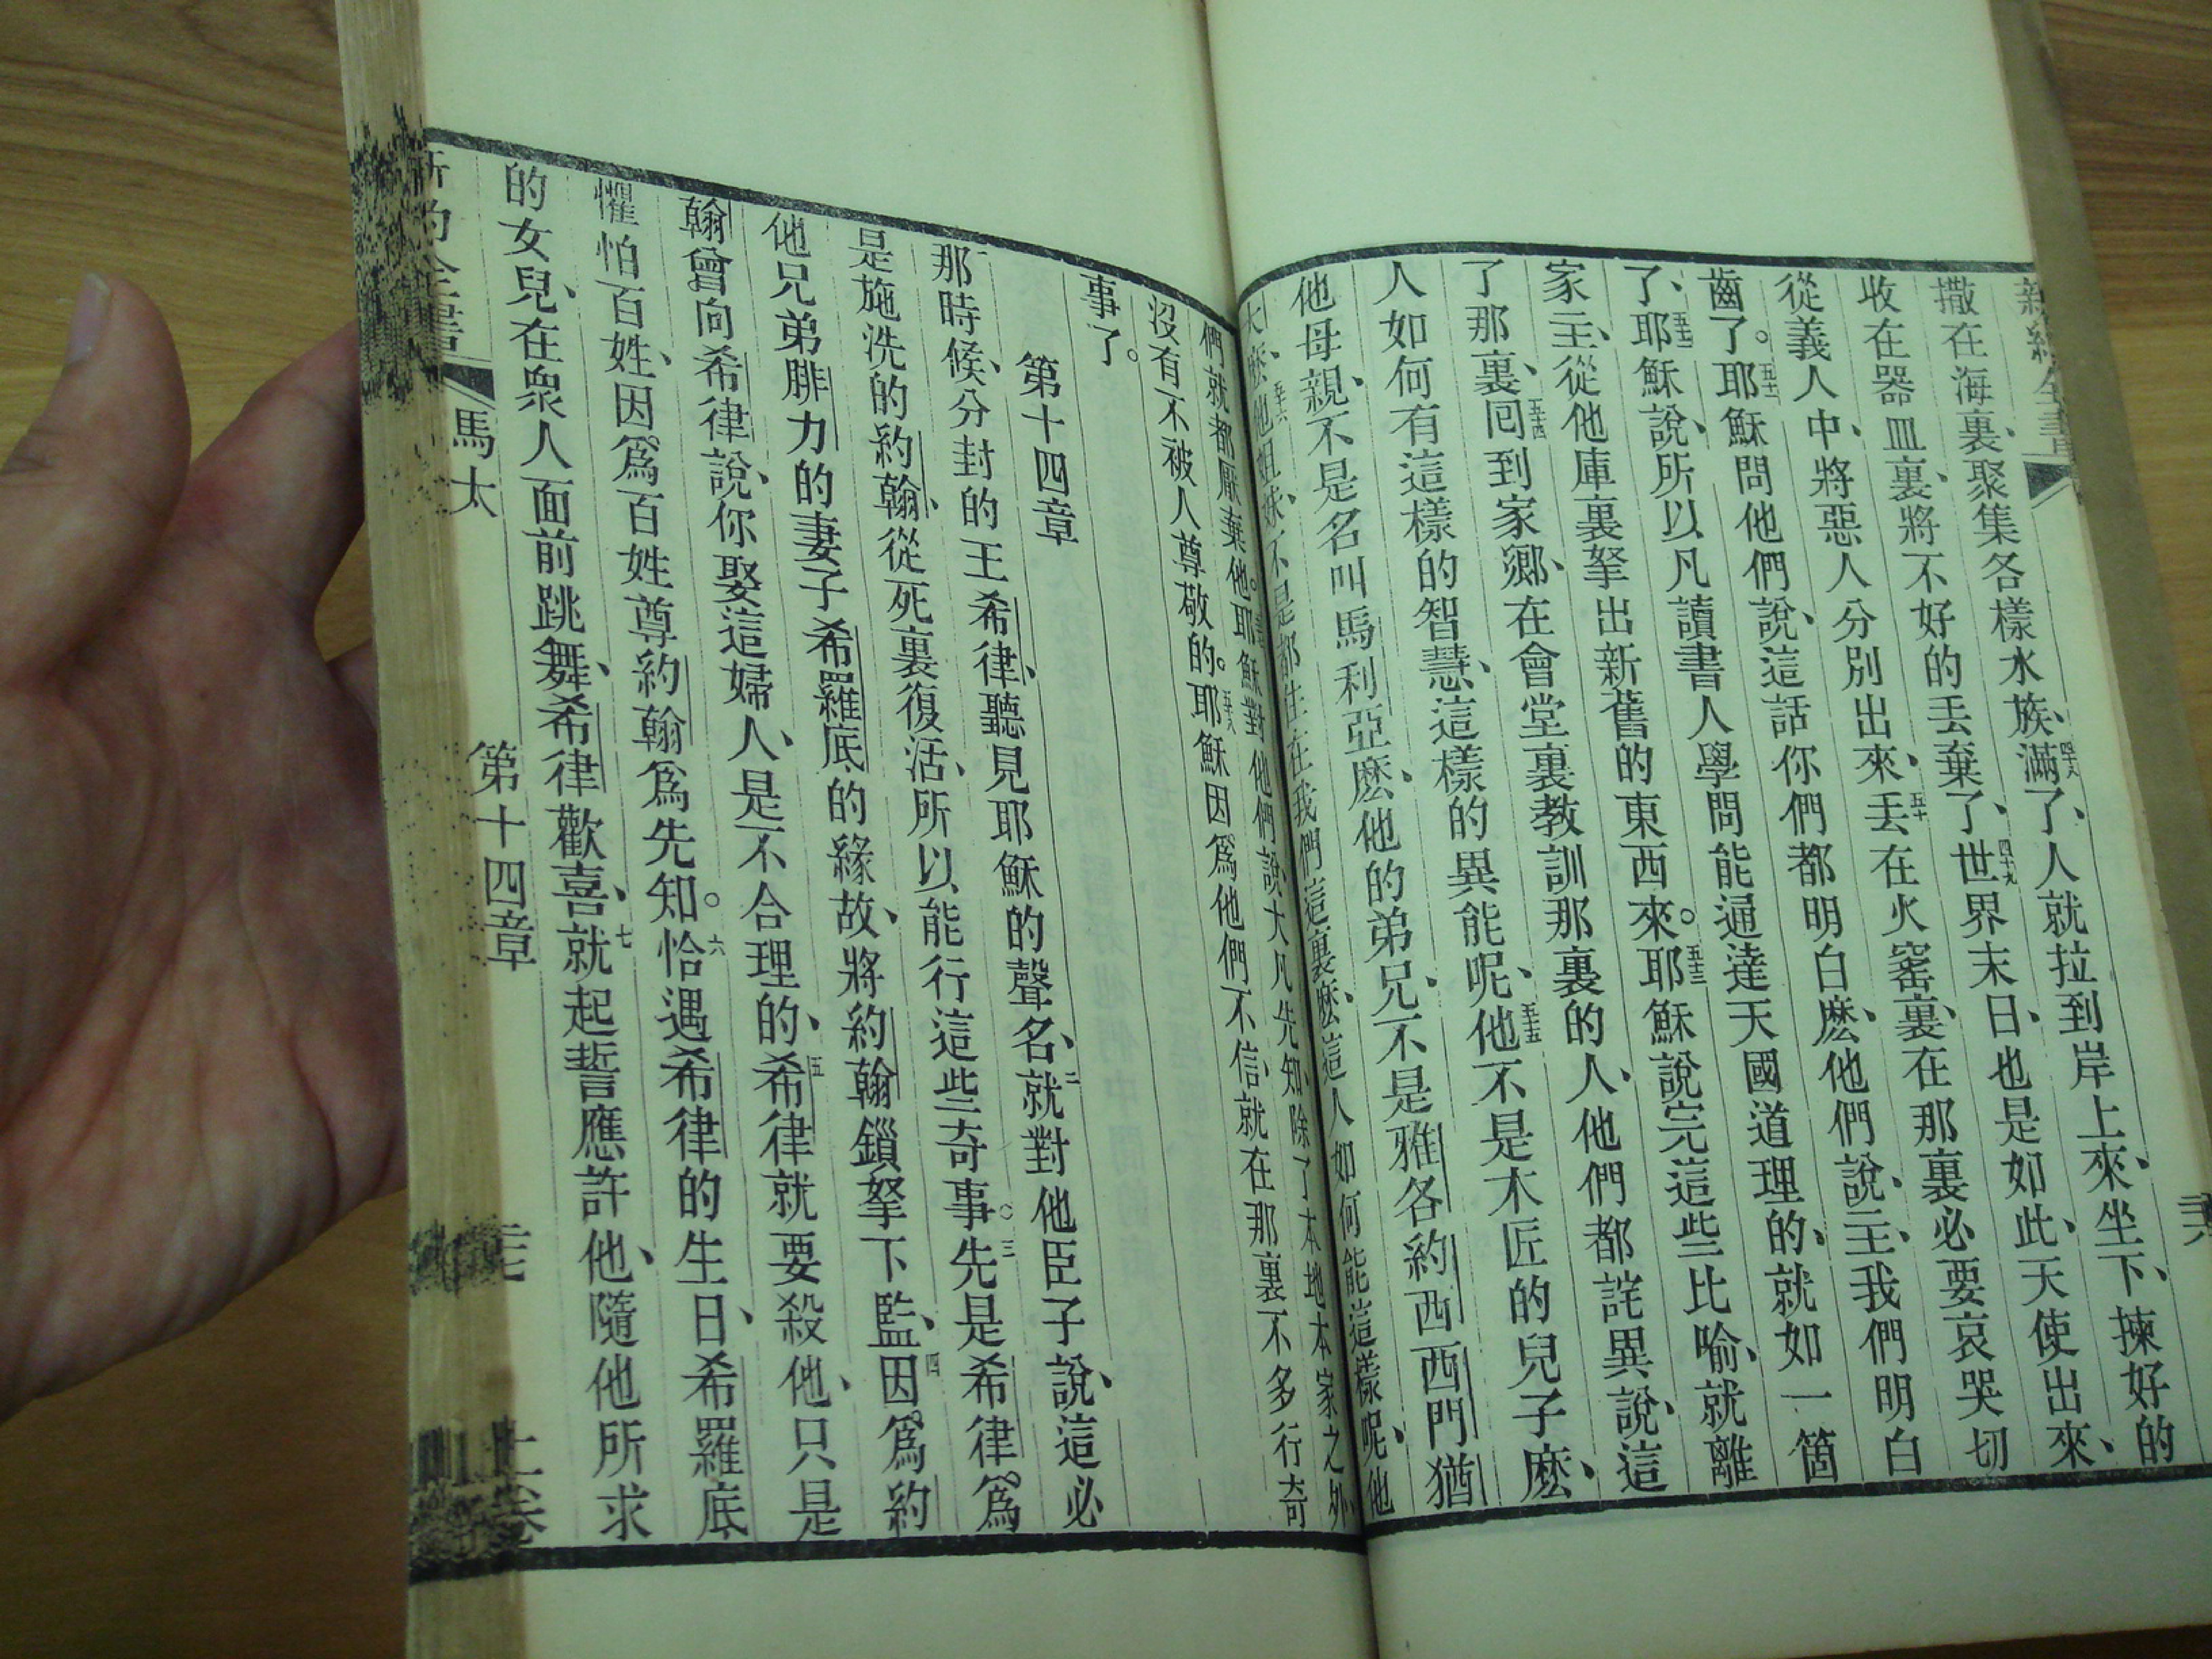 撒在海裏、聚集各樣水族、滿了、人就拉到岸上來、坐下、揀好的
收在器皿裏、將不好的丟棄了、世界末日、也是如此、天使出來、
從義人中、將惡人分別出來、丟在火窰裏、在那裏必要哀哭切
齒了。耶穌問他們說、這話你們都明白麽、他們說、主、我們明白
了、耶穌說、所以凡讀書人、學問能通達天國道理的、就如一箇
家主、從他庫裏拏出新舊的東西來。耶穌說完這些比喻、就離
了那裏、回到家鄉、在會堂裏教訓那裏的人、他們都詫異、說、這
人如何有這樣的智慧、這樣的異能呢、他不是木匠的兒子麽、
他母親、不是名叫馬利亞麽、他的弟兄、不是雅各約西西門猶
大麽、他姐妹、不是都住在我們這裏麽、這人如何能這樣呢、他
們就都厭棄他。耶穌對他們說、大凡先知、除了本地本家之外、
沒有不被人尊敬的。耶穌因爲他們不信、就在那裏不多行奇
事了。
第十四章
那時候、分封的王希律、聽見耶穌的聲名、就對他臣子說、這必
是施洗的約翰、從死裏復活、所以能行這些奇事。先是希律、爲
他兄弟腓力的妻子希羅底的緣故、將約翰鎖拏下監、因爲約
翰曾向希律說、你娶這婦人、是不合理的、希律就要殺他、只是
懼怕百姓、因爲百姓尊約翰爲先知。恰遇希律的生日、希羅底
的女兒、在衆人面前跳舞、希律歡喜、就起誓應許他、隨他所求
新約全書 馬太 第十四章 上卷